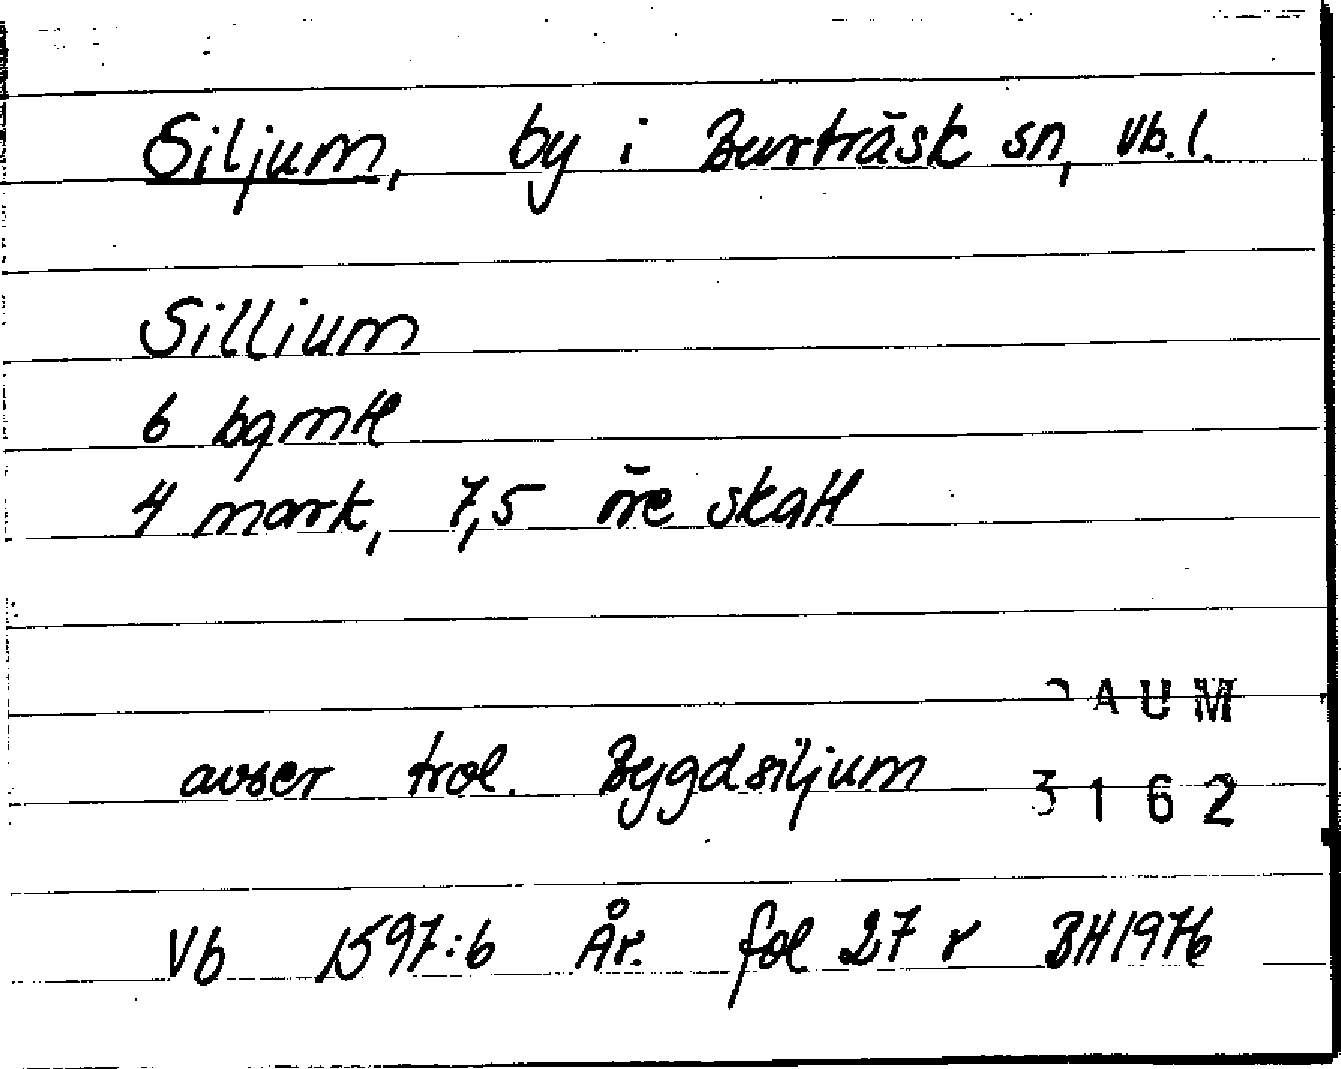 Siljum, by i Burträsk sn, Vb. l.
Sillium
6 bgmtl
4 mark, 7,5 öre skatt
AUM
avser trol. Bygdsiljum
3162
Vb 1597:6 År. fol 27 r BH1976